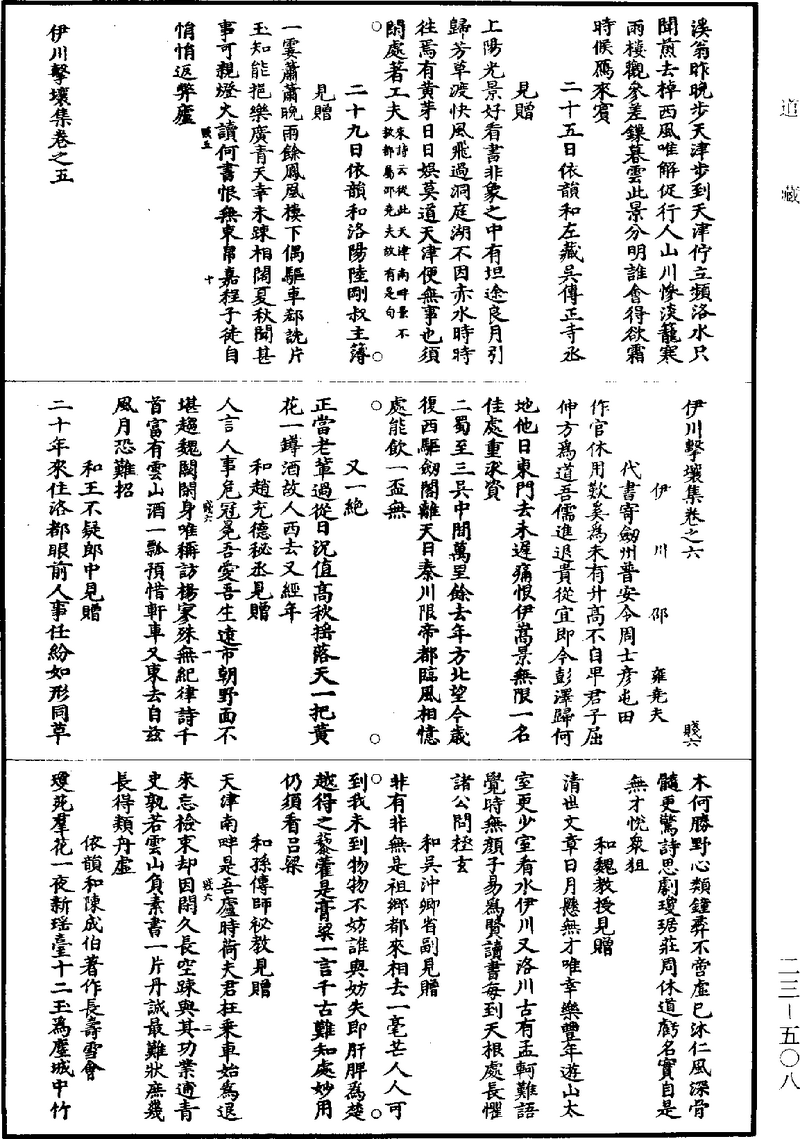 道藏
溪翁昨晚步天津步到天津佇立頻洛水只
聞煎去棹西風唯解促行人山川慘淡籠寒
雨樓觀參差鎖暮雲此景分明誰會得欲霜
時候鴈來賓
二十五日依韻和左藏吳傳正寺丞
見贈
上陽光景好看書非象之中有坦途良月引
歸芳草渡快風飛過洞庭湖不因赤水時時
往焉有黃芽日日娛莫道天津便無事也須
閑處著工夫來詩云從此天津南畔景不
教都屬邵堯夫故有是句
二十九日依韻和洛陽陸剛叔主簿
見贈
一霎蕭蕭晚雨餘鳳凰樓下偶驅車郄詵片
玉知能挹樂廣青天幸未踈相闊夏秋聞甚
事可親燈火讀何書恨無束帛嘉程子徒自
賤五
十
悄悄返弊廬
伊川擊壤集卷之五
伊川擊壤集卷之六
賤六
伊川邵雍堯夫
代書寄劒州普安令周士彥屯田
作官休用歎奚爲未有升高不自卑君子屈
伸方爲道吾儒進退貴從宜即今彭澤歸何
地他日東門去未遲痛恨伊嵩景無限一名
佳處重求資
二蜀至三吳中間萬里餘去年方北望今歲
復西驅劒閣離天日秦川限帝都臨風相憶
處能飲一盃無
又一絶
正當老輩過從日況值高秋揺落天一把黃
花一罇酒故人西去又經年
和趙充德秘丞見贈
人言人事危冠冕吾愛吾生遠市朝野面不
堪趨魏闕閑身唯稱訪楊寥殊無紀律詩千
賤六
一
首富有雲山酒一瓢預惜軒車又東去自玆
風月恐難招
和王不疑郎中見贈
二十年來住洛都眼前人事任紛如形同草
木何勝野心類鐘彞不啻虛已沐仁風深骨
髓更驚詩思劇瓊琚莊周休道虧名實自是
無才悅衆狙
和魏教授見贈
清世文章日月懸無才唯幸樂豐年遊山太
室更少室看水伊川又洛川古有孟軻難語
覺時無顏子易爲賢讀書每到天根處長懼
諸公問極玄
和吳沖卿省副見贈
非有非無是祖鄉都來相去一毫芒人人可
到我未到物物不妨誰與妨失即肝脾爲楚
越得之藜藿是膏粱一言千古難知處妙用
仍須看呂梁
和孫傳師秘教見贈
天津南畔是吾廬時荷夫君枉乗車始爲退
來忘檢束却因閑久長空踈與其功業逋青
賤六
二
史孰若雲山負素書一片丹誠最難狀庶幾
長得類舟虛
依韻和陳成伯著作長壽雪會
瓊苑羣花一夜新瑶臺十二玉爲塵城中竹
二三—五〇八